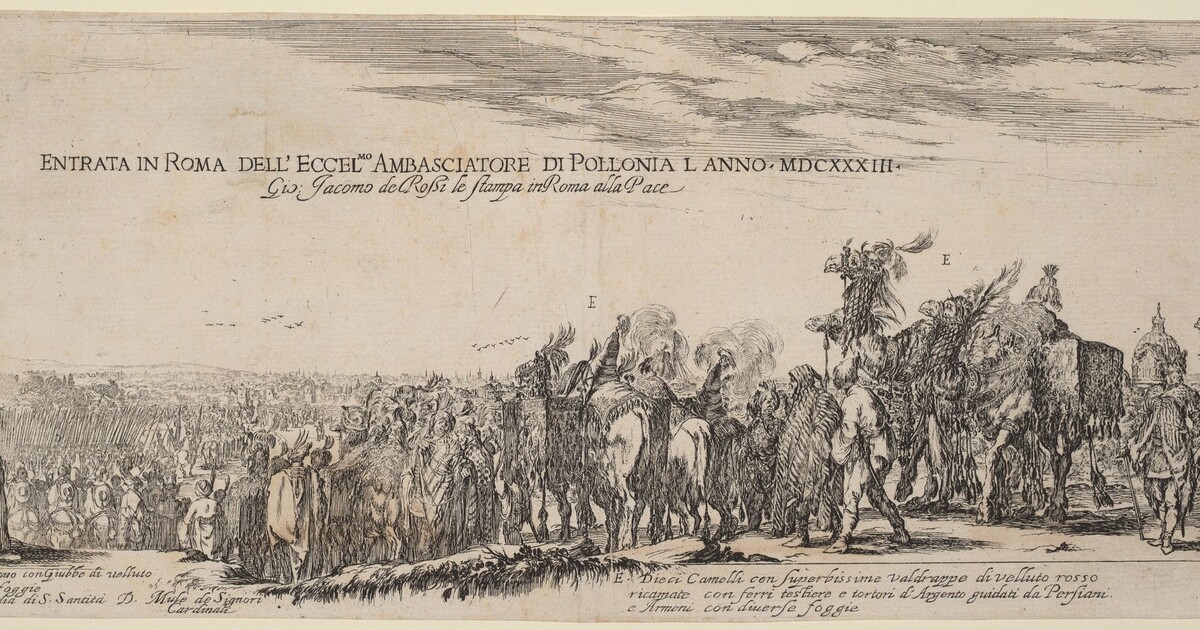 ENTRATA IN ROMA DELL' ECCEL.MO AMBASCIATORE DI POLLONIA L ANNO · MDCXXXIII ·
Gio: Jacomo de Rossi le stampa in Roma alla Pace
E
E
con Giubbe di velluto
foggie
di S. Santità D. Mule de Signori
Cardinali
E. Dieci Camelli con superbissime valdrappe di velluto rosso
ricamate con ferri testiere e tortori d'Argento guidati da Persiani.
e Armeni con diverse foggie